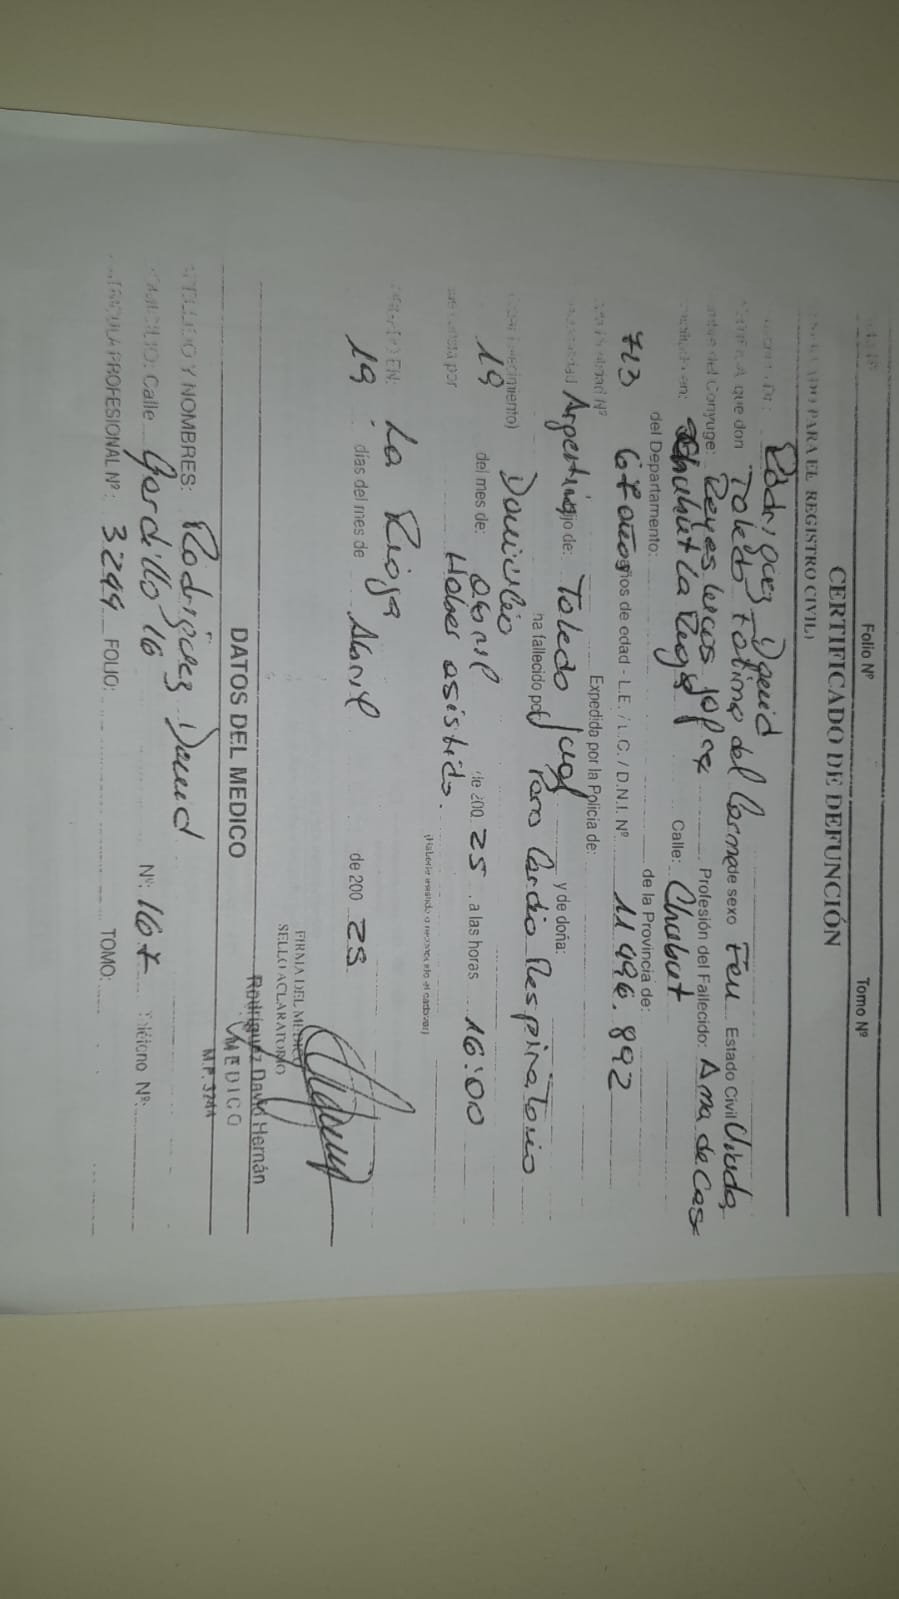 Folio Nº Tomo Nº
CERTIFICADO DE DEFUNCIÓN
PARA EL REGISTRO CIVIL)
Rodriguez David
que don Toledo Fatima del Carmen de sexo Fem Estado Civil Viuda
del Conyuge: Reyes Profesión del Fallecido: Ama de Casa
en: La Rioja Calle: Chubut
713 del Departamento: de la Provincia de:
67 años años de edad - L.E. / L.C. / D.N.I. Nº 11.496.892
Expedida por la Policia de:
Argentina hijo de: Toledo y de doña:
Domicilio ha fallecido por Paro Cardio Respiratorio
19 del mes de: Abril de 200 25 a las horas 16:00
por Haber asistido.
(Haberlo asistido o reconocido el cadaver)
EN: La Rioja
19 días del mes de Abril de 200 25
FIRMA DEL MEDICO
SELLO ACLARATORIO
Rodriguez David Hernán
MEDICO
M.P. 3244
DATOS DEL MEDICO
Y NOMBRES: Rodriguez David
Calle Gordillo Nº: 167 Teléfono Nº:
PROFESIONAL Nº: 3244 FOLIO: TOMO: